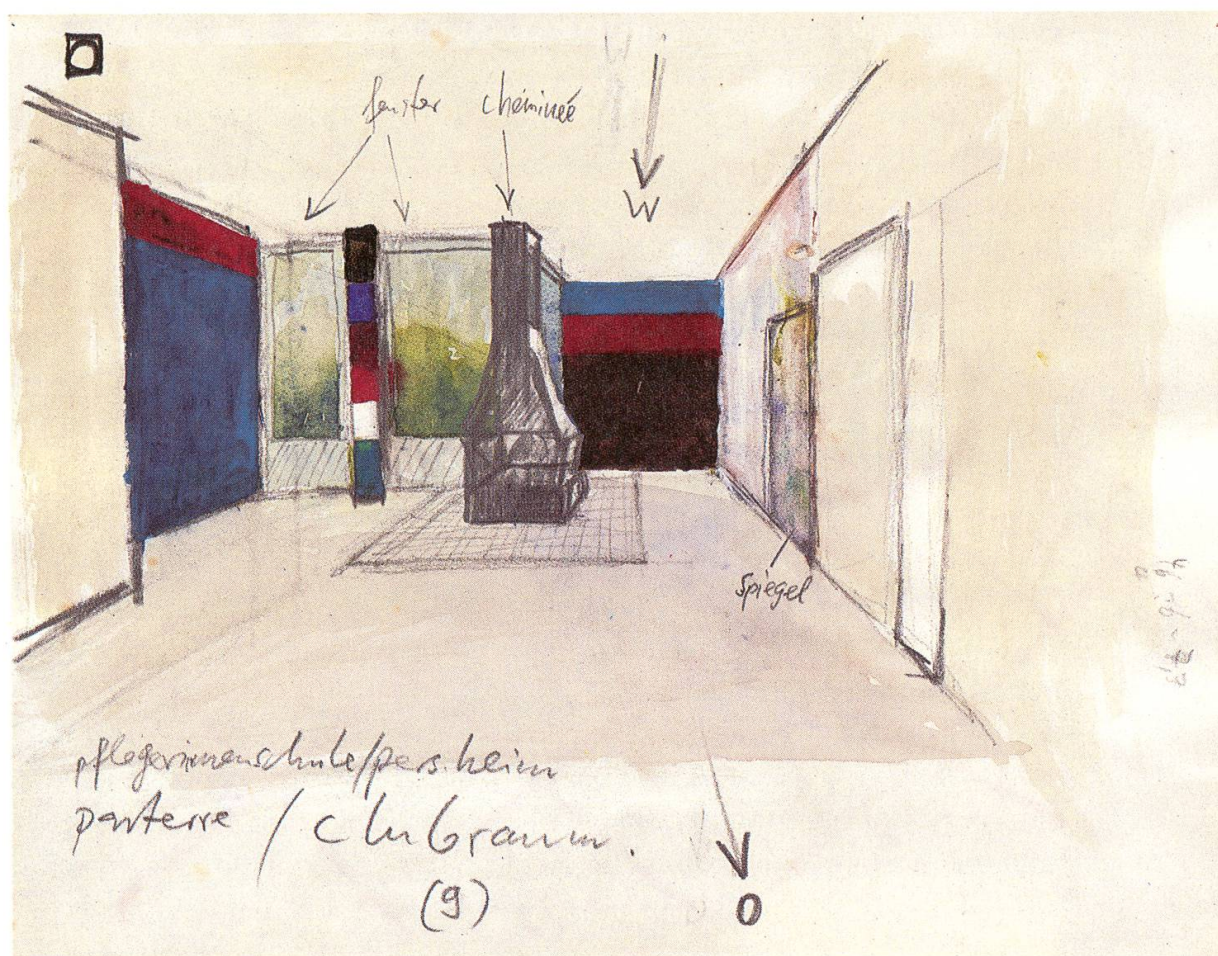 fenster cheminée
W
W
spiegel
pflegerinnenschule/pers.heim
parterre / clubraum.
(9)
O